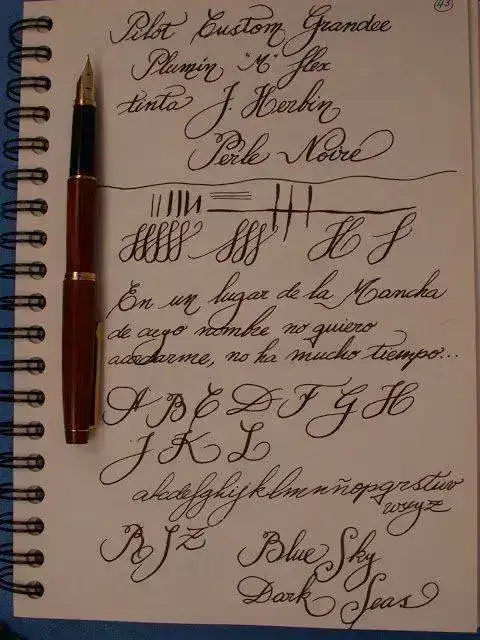 43
Pilot Custom Grandee
Plumin "M" flex
tinta J. Herbin
Perle Noire
H J
En un lugar de la Mancha
de cuyo nombre no quiero
acordarme, no ha mucho tiempo...
A B C D F G H
J K L
abcdefghijklmnñopqrstuv
wxyz
R J Z
Blue Sky
Dark Seas